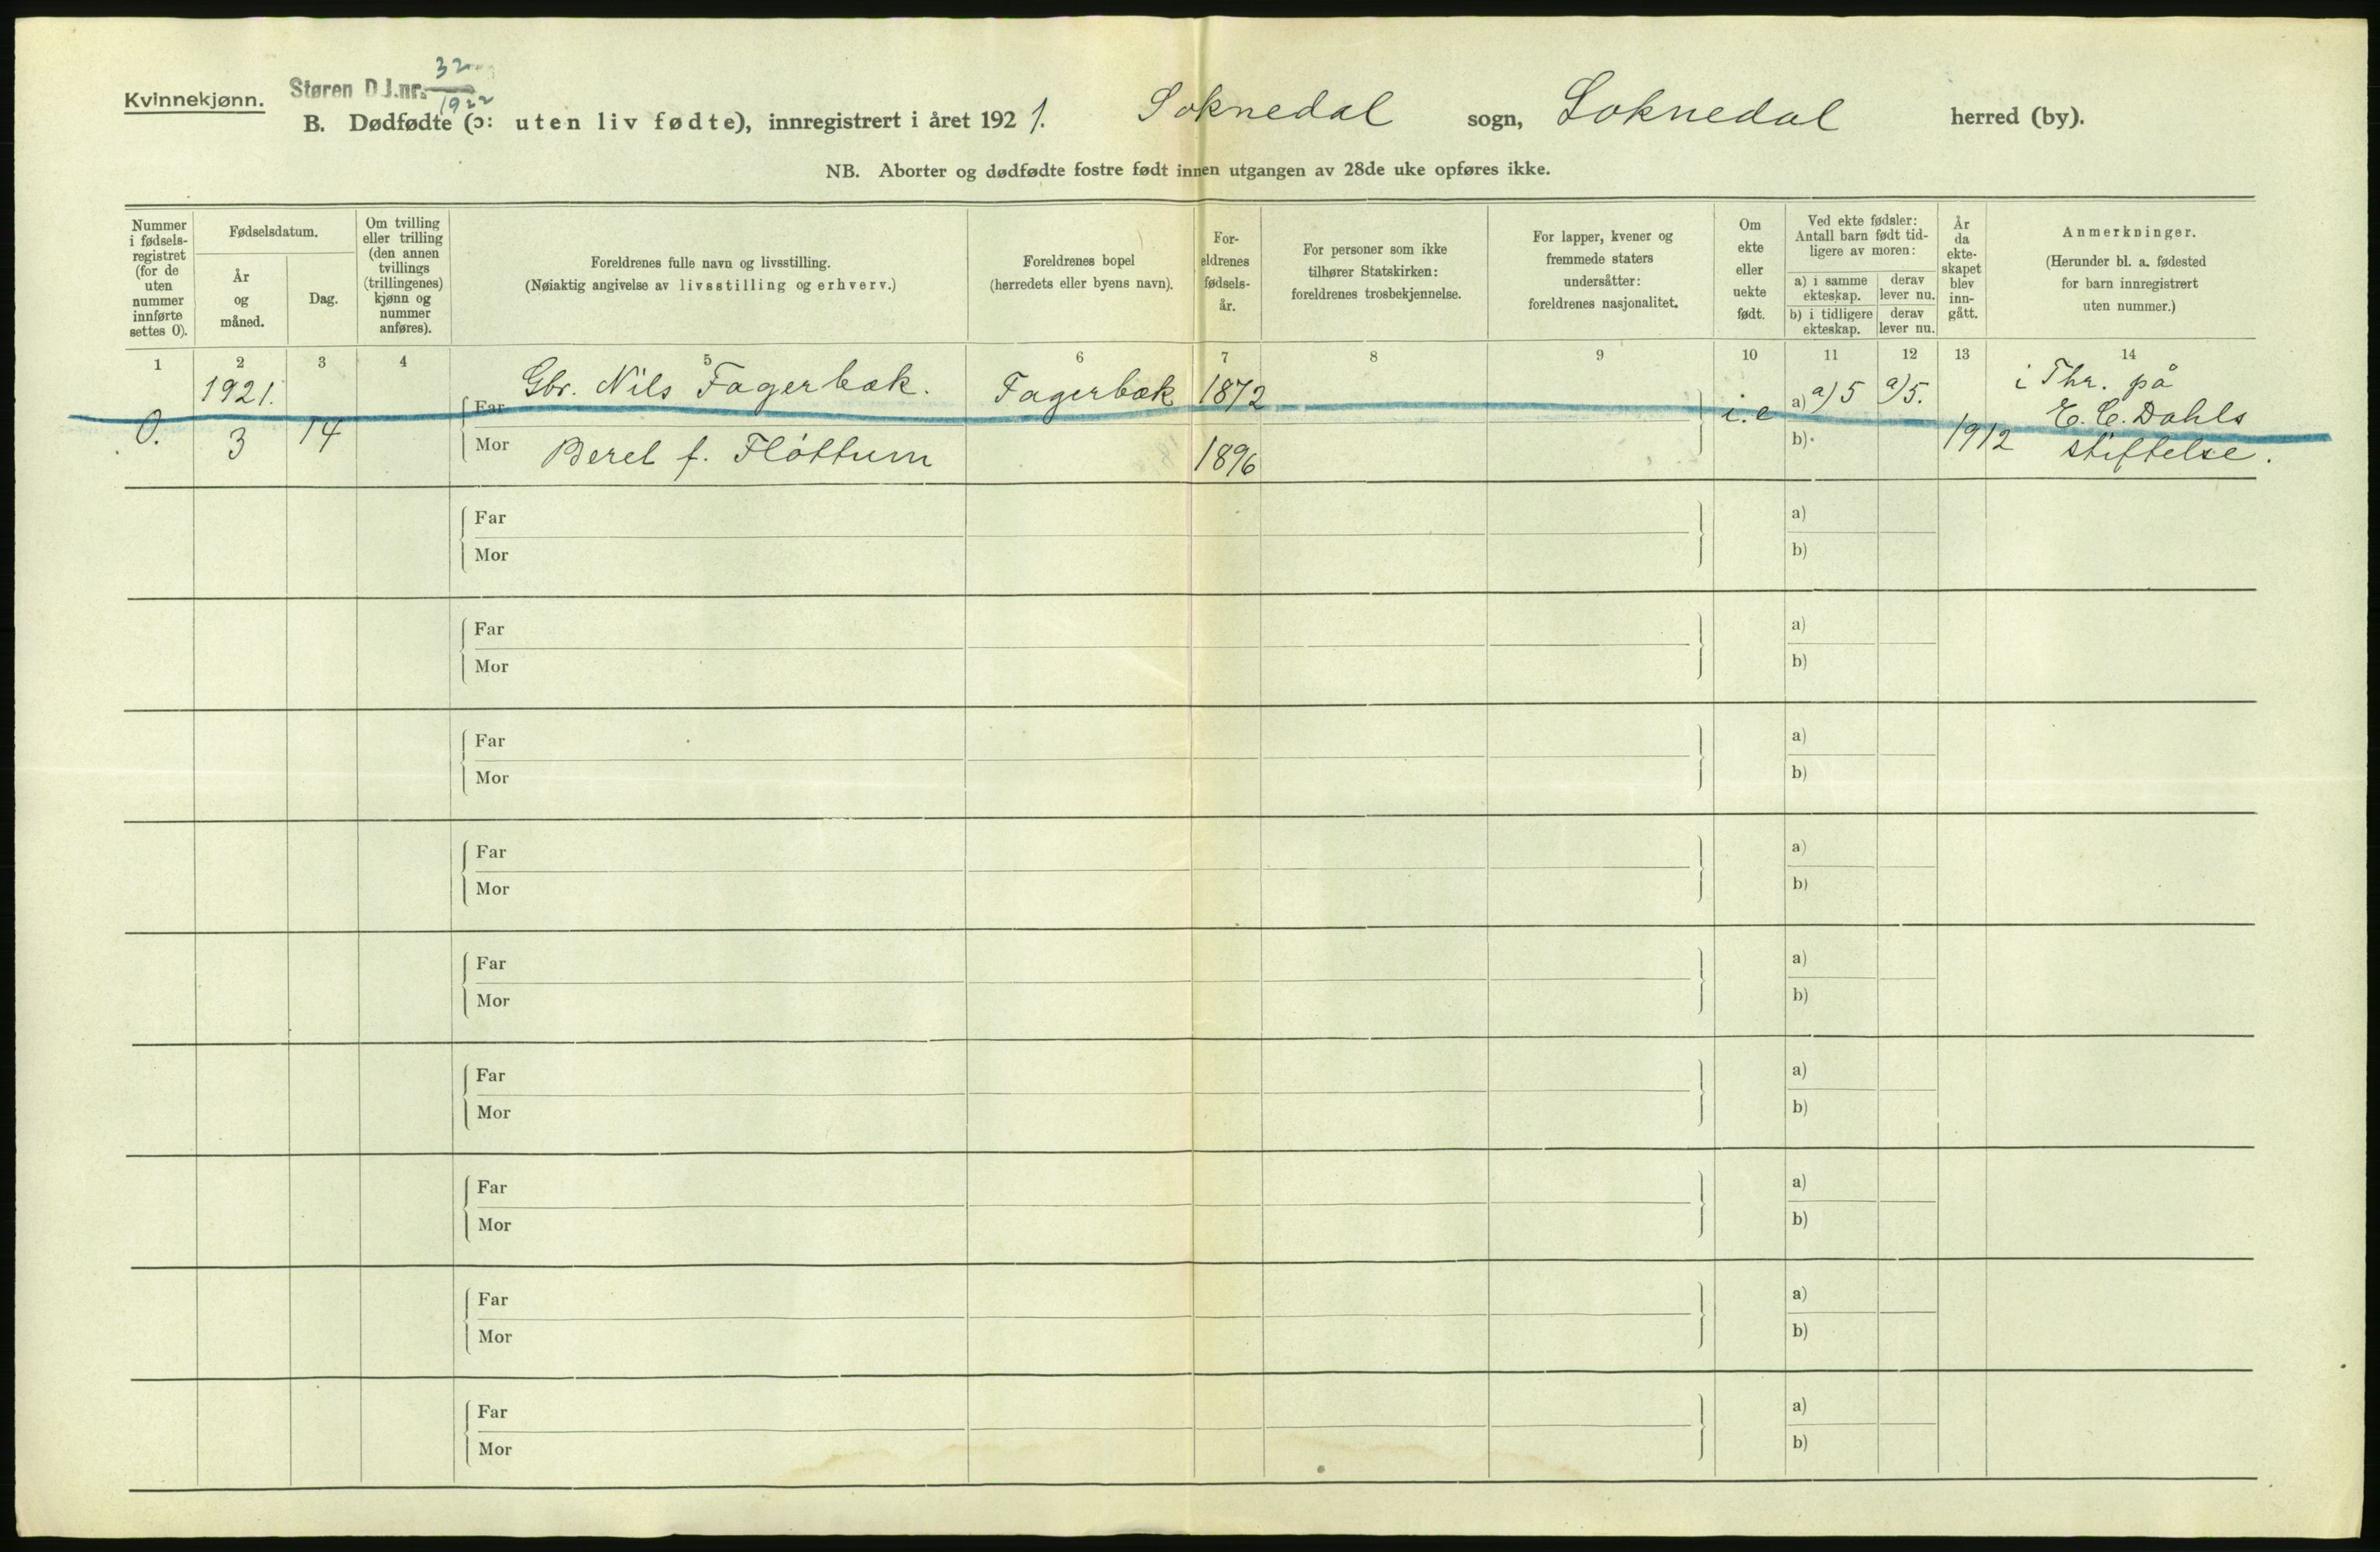 Kvinnekjønn.
Støren D J.nr. 32
1922
B. Dødfødte (ɔ: uten liv fødte), innregistrert i året 1921. Soknedal sogn, Soknedal herred (by).
NB. Aborter og dødfødte fostre født innen utgangen av 28de uke opføres ikke.
Nummer
i fødsels-
registret
(for de
uten
nummer
innførte
settes 0).
Fødselsdatum.
År
og
måned.
Dag.
Om tvilling
eller trilling
(den annen
tvillings
(trillingenes)
kjønn og
nummer
anføres).
Foreldrenes fulle navn og livsstilling.
(Nøiaktig angivelse av livsstilling og erhverv.)
Foreldrenes bopel
(herredets eller byens navn).
For-
eldrenes
fødsels-
år.
For personer som ikke
tilhører Statskirken:
foreldrenes trosbekjennelse.
For lapper, kvener og
fremmede staters
undersåtter:
foreldrenes nasjonalitet.
Om
ekte
eller
uekte
født.
Ved ekte fødsler:
Antall barn født tid-
ligere av moren:
a) i samme
ekteskap.
derav
lever nu.
b) i tidligere
ekteskap.
derav
lever nu.
År
da
ekte-
skapet
blev
inn-
gått.
Anmerkninger.
(Herunder bl. a. fødested
for barn innregistrert
uten nummer.)
1 2 3 4 5 6 7 8 9 10 11 12 13 14
1921. Far Gbr. Nils Fagerbæk. Fagerbæk 1872 i.e a) a) 5 a) 5. i Thr. på
E. C. Dahls
0. 3 14 Mor Berel f. Fløttum 1896 b) 1912 stiftelse.
Far a)
Mor b)
Far a)
Mor b)
Far a)
Mor b)
Far a)
Mor b)
Far a)
Mor b)
Far a)
Mor b)
Far a)
Mor b)
Far a)
Mor b)
Far a)
Mor b)